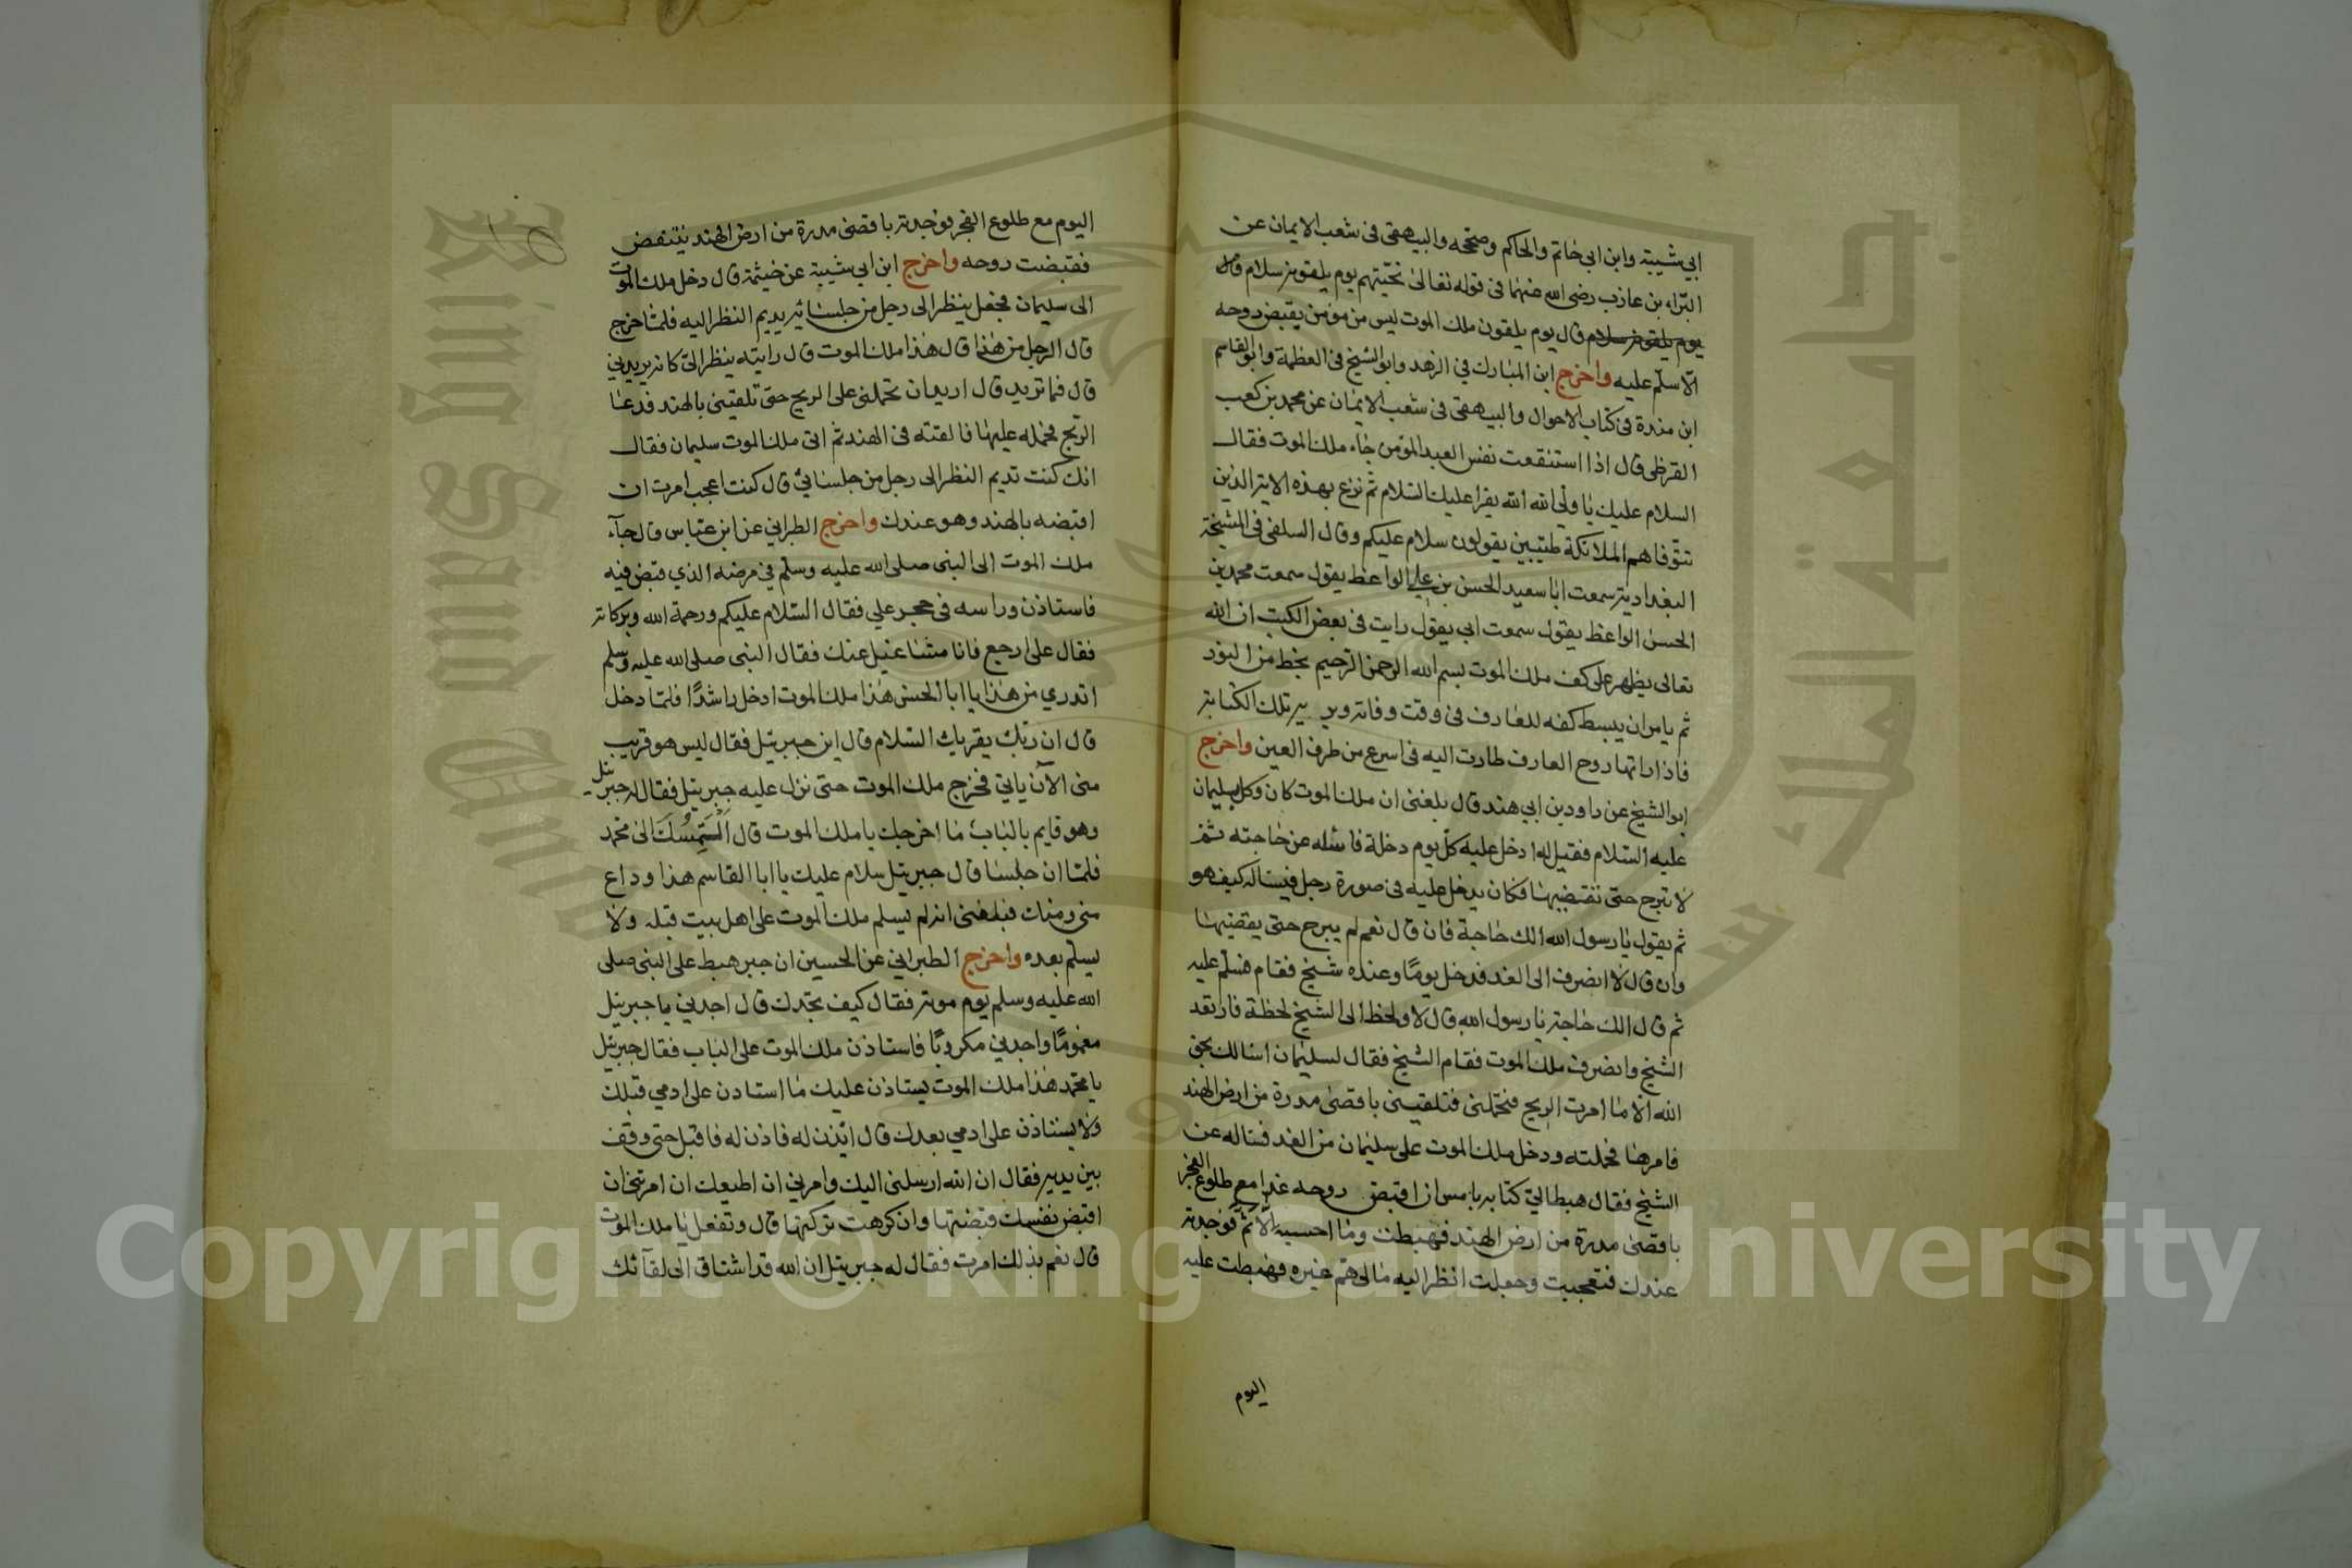 ابي شيبة وابن ابي حاتم والحاكم وصححه والبيهقي في شعب الايمان عن
البراء بن عازب رضي الله عنهما في قوله تعالى تحيتهم يوم يلقونه سلام قال
يوم يلقونه سلام قال يوم يلقون ملك الموت ليس من مومن يقبض روحه
الا سلم عليه واخرج ابن المبارك في الزهد وابو الشيخ في العظمة وابو القاسم
ابن مندة في كتاب الاحوال والبيهقي في شعب الايمان عن محمد بن كعب
القرظي قال اذا استنقعت نفس العبد المؤمن جاء ملك الموت فقال
السلام عليك يا ولي الله الله يقرا عليك السلام ثم نزع بهذه الاية الذين
تتوفاهم الملائكة طيبين يقولون سلام عليكم وقال السلفي في المشيخة
البغدادية سمعت ابا سعيد الحسن بن علي الواعظ يقول سمعت محمد بن
الحسن الواعظ يقول سمعت ابي يقول رايت في بعض الكتب ان الله
تعالى يظهر على كف ملك الموت بسم الله الرحمن الرحيم بخط من النور
ثم يامر ان يبسط كفه للعارف في وقت وفاته ويريه تلك الكتابة
فاذا راتها روح العارف طارت اليه في اسرع من طرف العين واخرج
ابو الشيخ عن داود بن ابي هند قال بلغني ان ملك الموت كان وكل بسليمان
عليه السلام فقيل له ادخل عليه كل يوم دخلة فاسئله عن حاجته ثم
لا تبرح حتى تقضيها فكان يدخل عليه في صورة رجل فيساله كيف هو
ثم يقول يا رسول الله الك حاجة فان قال نعم لم يبرح حتى يقضيها
وان قال لا انصرف الى الغد فدخل يوما وعنده شيخ فقام فسلم عليه
ثم قال الك حاجة يا رسول الله قال لا ولحظ الى الشيخ لحظة فارتعد
الشيخ وانصرف ملك الموت فقام الشيخ فقال لسليمان اسالك بحق
الله الا ما امرت الريح فتحملني فتلقيني باقصى مدرة من ارض الهند
فامرها فحملته ودخل ملك الموت على سليمان من الغد فساله عن
الشيخ فقال هبط الي كتابه بامس ان اقبض روحه غدا مع طلوع الفجر
باقصى مدرة من ارض الهند فهبطت وما احسبه الا ثم فوجدته
عندك فتعجبت وجعلت انظر اليه مالي هم غيره فهبطت عليه
اليوم
اليوم مع طلوع الفجر فوجدته باقصى مدرة من ارض الهند ينتفض
فقبضت روحه واخرج ابن ابي شيبة عن خيثمة قال دخل ملك الموت
الى سليمان فجعل ينظر الى رجل من جلسائه يديم النظر اليه فلما خرج
قال الرجل من هذا قال هذا ملك الموت قال رايته ينظر الي كانه يريدني
قال فما تريد قال اريد ان تحملني على الريح حتى تلقيني بالهند فدعا
الريح فحمله عليها فالقته في الهند ثم اتى ملك الموت سليمان فقال
انك كنت تديم النظر الى رجل من جلسائي قال كنت اعجب امرت ان
اقبضه بالهند وهو عندك واخرج الطبراني عن ابن عباس قال جآء
ملك الموت الى النبي صلى الله عليه وسلم في مرضه الذي قبض فيه
فاستاذن وراسه في حجر علي فقال السلام عليكم ورحمة الله وبركاته
فقال على ارجع فانا مشاغيل عنك فقال النبي صلى الله عليه وسلم
اتدري من هذا يا ابا الحسن هذا ملك الموت ادخل راشدا فلما دخل
قال ان ربك يقريك السلام قال اين جبريئل فقال ليس هو قريب
مني الآن ياتي فخرج ملك الموت حتى نزل عليه جبريئل فقال له جبريئل
وهو قايم بالباب ما اخرجك يا ملك الموت قال التمسك الى محمد
فلما ان جلسا قال جبريئل سلام عليك يا ابا القاسم هذا وداع
مني ومنك فبلغني انه لم يسلم ملك الموت على اهل بيت قبله ولا
يسلم بعده واخرج الطبراني عن الحسين ان جبر هبط على النبي صلى
الله عليه وسلم يوم موته فقال كيف تجدك قال اجدني يا جبريئل
مغموما واجدني مكروبا فاستاذن ملك الموت على الباب فقال جبريئل
يا محمد هذا ملك الموت يستاذن عليك ما استاذن على ادمي قبلك
ولا يستاذن على ادمي بعدك قال ائذن له فاذن له فاقبل حتى وقف
بين يديه فقال ان الله ارسلني اليك وامرني ان اطيعك ان امرتني ان
اقبض نفسك قبضتها وان كرهت تركتها قال وتفعل يا ملك الموت
قال نعم بذلك امرت فقال له جبريئل ان الله قد اشتاق الى لقآئك
جامعة الملك سعود
King Saud University
Copyright © King Saud University